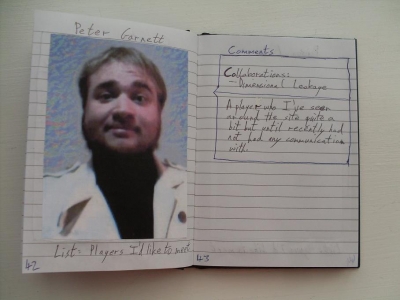 Peter Garnett
List: Players I'd like to meet
42
Comments:
Collaborations:
- Dimensional Leakups
A player who I've seen
around the site quite a
bit but until recently had
not had any communications
with.
43